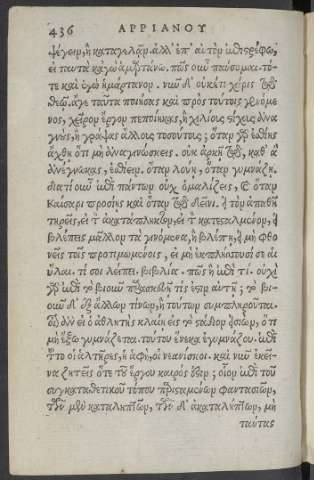 436 ΑΡΡΙΑΝΟΥ
ψέγειν, ἢ καταγελᾶν. ἀλλ' ἐπ' αὐτὸν ἐπιστρέφω,
εἰ ταυτὰ κἀγὼ ἁμαρτάνω. πῶς οὖν παύσομαι. τό-
τε καὶ ἐγὼ ἡμάρτανον. νῦν δ' οὐκέτι χάρις τῷ
θεῷ. ἄγε ταῦτα ποιήσας καὶ πρὸς τούτοις γενόμε
νος, χεῖρον ἔργον πεποίηκας, ἢ χιλίους στίχους ἀνα
γνοὺς, ἢ γράψας ἄλλους τοσούτους; ὅταν γὰρ ἐσθίῃς
ἄχθῃ ὅτι μὴ ἀναγινώσκεις. οὐκ ἀρκῇ τῷ, καθ' ἃ
ἀνέγνωκας, ἐσθίειν. ὅταν λούῃ, ὅταν γυμνάζῃ.
διατί οὖν ἐπὶ πάντων οὐχ ὁμαλίζεις, καὶ ὅταν
Καίσαρι προσίῃς καὶ ὅταν τῷ δεῖνι. εἰ τὸν ἀπαθῆ
τηρεῖς, εἰ τὸν ἀκατάπληκτον, εἰ τὸν κατεσταλμένον, εἰ
βλέπεις μᾶλλον τὰ γινόμενα, ἢ βλέπῃ, εἰ μὴ φθο
νεῖς τοῖς προτιμωμένοις, εἰ μὴ ἐκπλήσσουσί σε αἱ
ὗλαι. τί σοι λείπει, βιβλία. πῶς ἢ ἐπὶ τί. οὐχὶ
γὰρ ἐπὶ τὸ βιοῦν παρασκευή τις ἐστὶν αὕτη; τὸ βι-
οῦν δ' ἐξ ἄλλων τινῶν, ἢ τούτων συμπληροῦται.
οἷον ἂν εἰ ὁ ἀθλητὴς κλαίῃ εἰς τὸ στάδιον εἰσιὼν, ὅτι
μὴ ἔξω γυμνάζεται. τούτου ἕνεκα ἐγυμνάζου. ἐπὶ
τοῦτο οἱ ἁλτῆρες, ἡ ἁφὴ, οἱ νεανίσκοι. καὶ νῦν ἐκεῖ-
να ζητεῖς ὅτε τοῦ ἔργου καιρός ἐστιν; οἷον ἐπὶ τοῦ
συγκαταθετικοῦ τόπου παρισταμένων φαντασιῶν,
τῶν μὲν καταληπτῶν, τῶν δ' ἀκαταλήπτων, μὴ
ταύτας